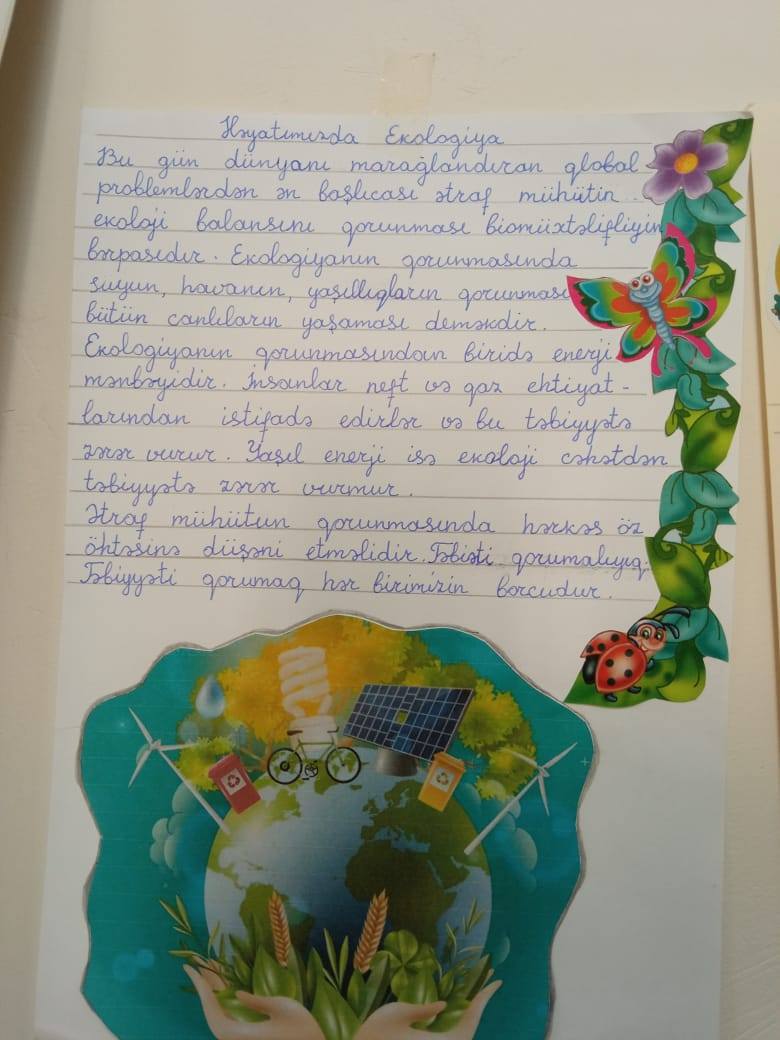 Həyatımızda Ekologiya
Bu gün dünyanı marağlandıran global
problemlərdən ən başlıcası ətraf mühütin
ekoloji balansını qorunması biomüxtəlifliyin
bərpasıdır. Ekologiyanın qorunmasında
suyun, havanın, yaşıllıqların qorunması
bütün canlıların yaşaması deməkdir.
Ekologiyanın qorunmasından biridə enerji
mənbəyidir. İnsanlar neft və qaz ehtiyat-
larından istifadə edirlər və bu təbiyyətə
zərər vurur. Yaşıl enerji isə ekoloji cəhətdən
təbiyyətə zərər vurmur.
Ətraf mühütun qorunmasında hərkəs öz
öhtəsinə düşəni etməlidir. Təbiəti qorumalıyıq.
Təbiyyəti qorumaq hər birimizin borcudur.